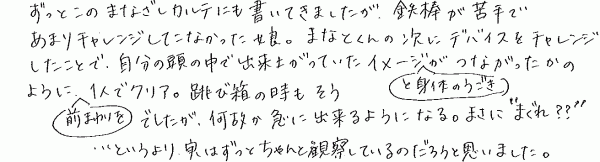 ずっとこのまなざしカルテにも書いてきましたが、鉄棒が苦手で
あまりチャレンジしてこなかった娘。まなとくんの次にデバイスをチャレンジ
したことで、自分の頭の中で出来上がっていたイメージがつながったかの
と身体のうごき
ように、1人でクリア。跳び箱の時もそう
前まわりを
でしたが、何故か急に出来るようになる。まさに"まぐれ??"
…というより、実はずっとちゃんと観察しているのだろうと思いました。